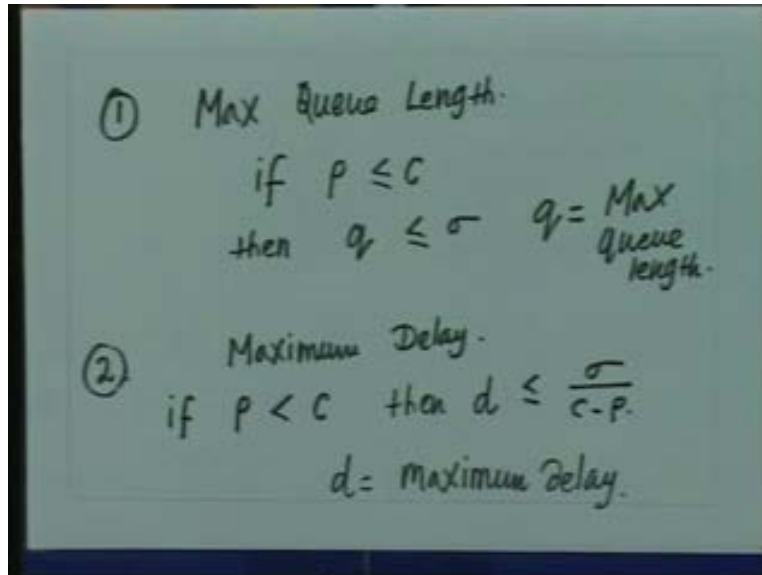 ① Max Queue Length.
if ρ ≤ C
then q ≤ σ q = Max queue length.
② Maximum Delay.
if ρ < C then d ≤ σ/(C-ρ).
d = Maximum Delay.